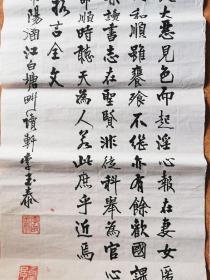 大惡見色而起淫心報在妻女匿
和順雖饔飧不继亦有餘歡國課
讀書志在聖賢非徒科舉為官心
命順時聽天為人若此庶乎近焉
格言全文
陽涵江白塘畔讀軒李玉泰